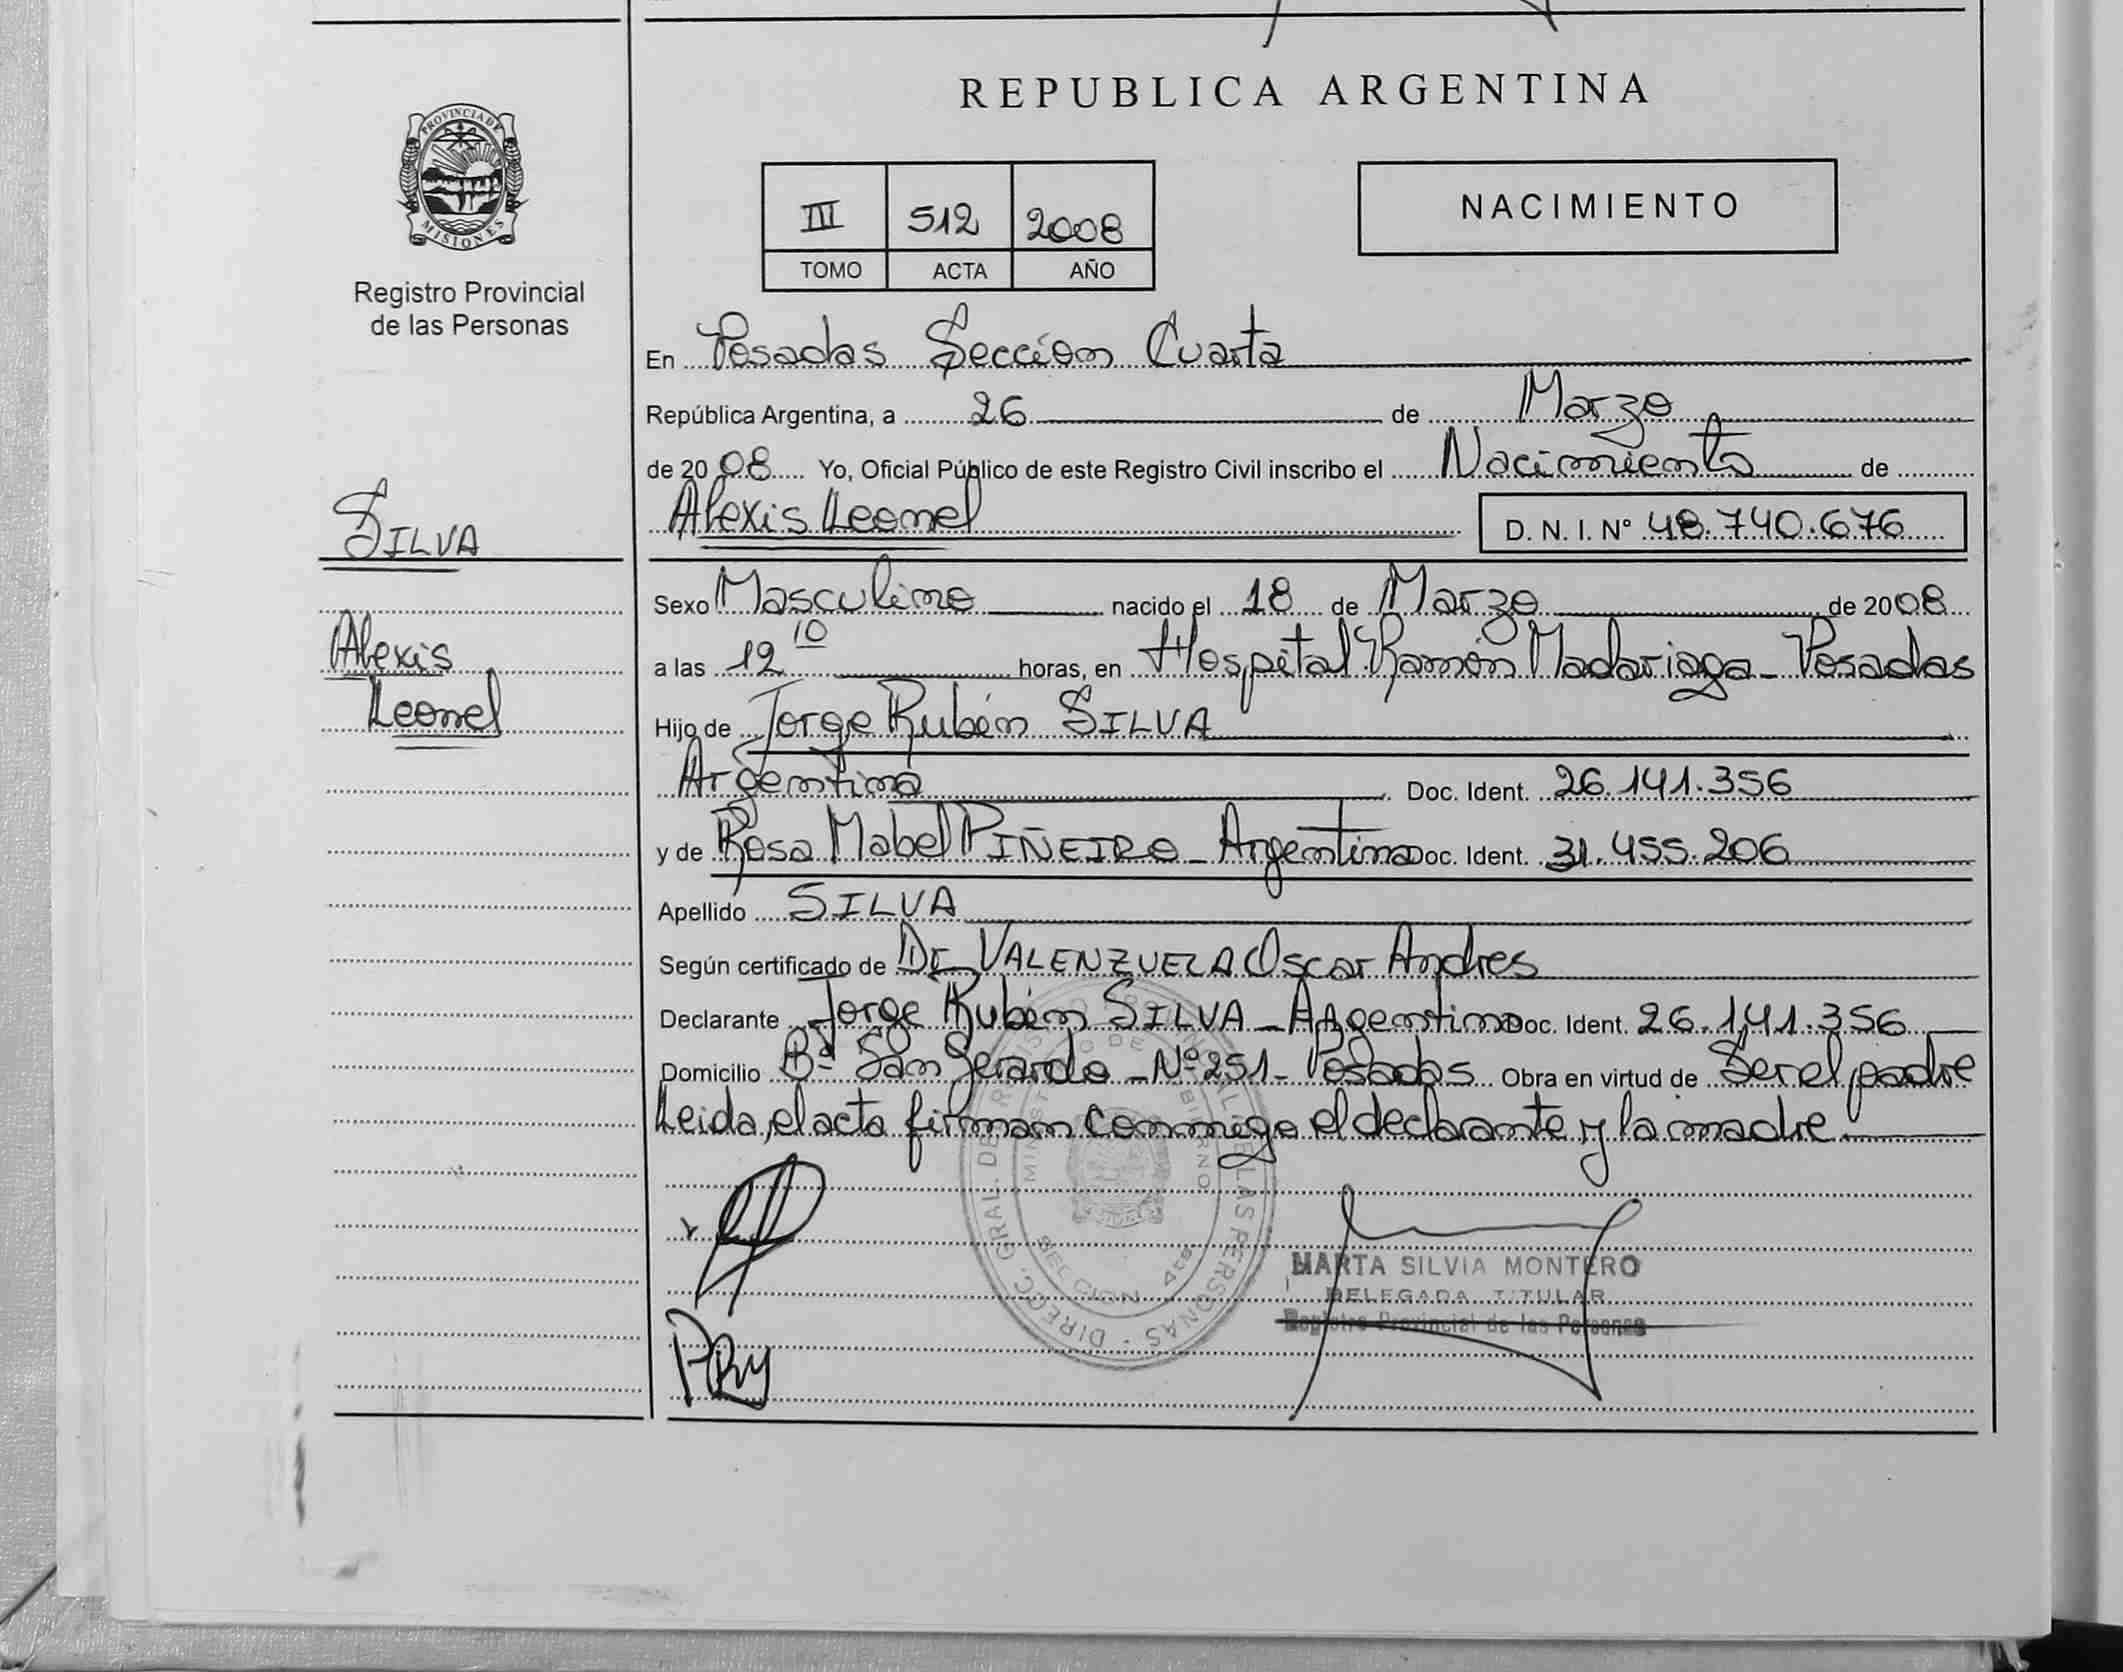 REPUBLICA ARGENTINA
PROVINCIA DE
MISIONES
Registro Provincial
de las Personas
III 512 2008
TOMO ACTA AÑO
NACIMIENTO
En Posadas Sección Cuarta
República Argentina, a 26 de Marzo
de 2008 Yo, Oficial Público de este Registro Civil inscribo el Nacimiento de
SILVA
Alexis Leonel D. N. I. Nº 48.740.676
Sexo Masculino nacido el 18 de Marzo de 2008
Alexis
a las 12 10 horas, en Hospital Ramón Madariaga - Posadas
Leonel
Hijo de Jorge Rubén SILVA
Argentino Doc. Ident. 26.141.356
y de Rosa Mabel PIÑEIRO - Argentina Doc. Ident. 31.455.206
Apellido SILVA
Según certificado de Dr VALENZUELA Oscar Andres
Declarante Jorge Rubén SILVA - Argentino Doc. Ident. 26.141.356
Domicilio Bº San Gerardo - Nº 251 - Posadas Obra en virtud de Ser el padre
Leida, el acta firman conmigo el declarante y la madre
MARTA SILVIA MONTERO
DELEGADA TITULAR
Registro Provincial de las Personas